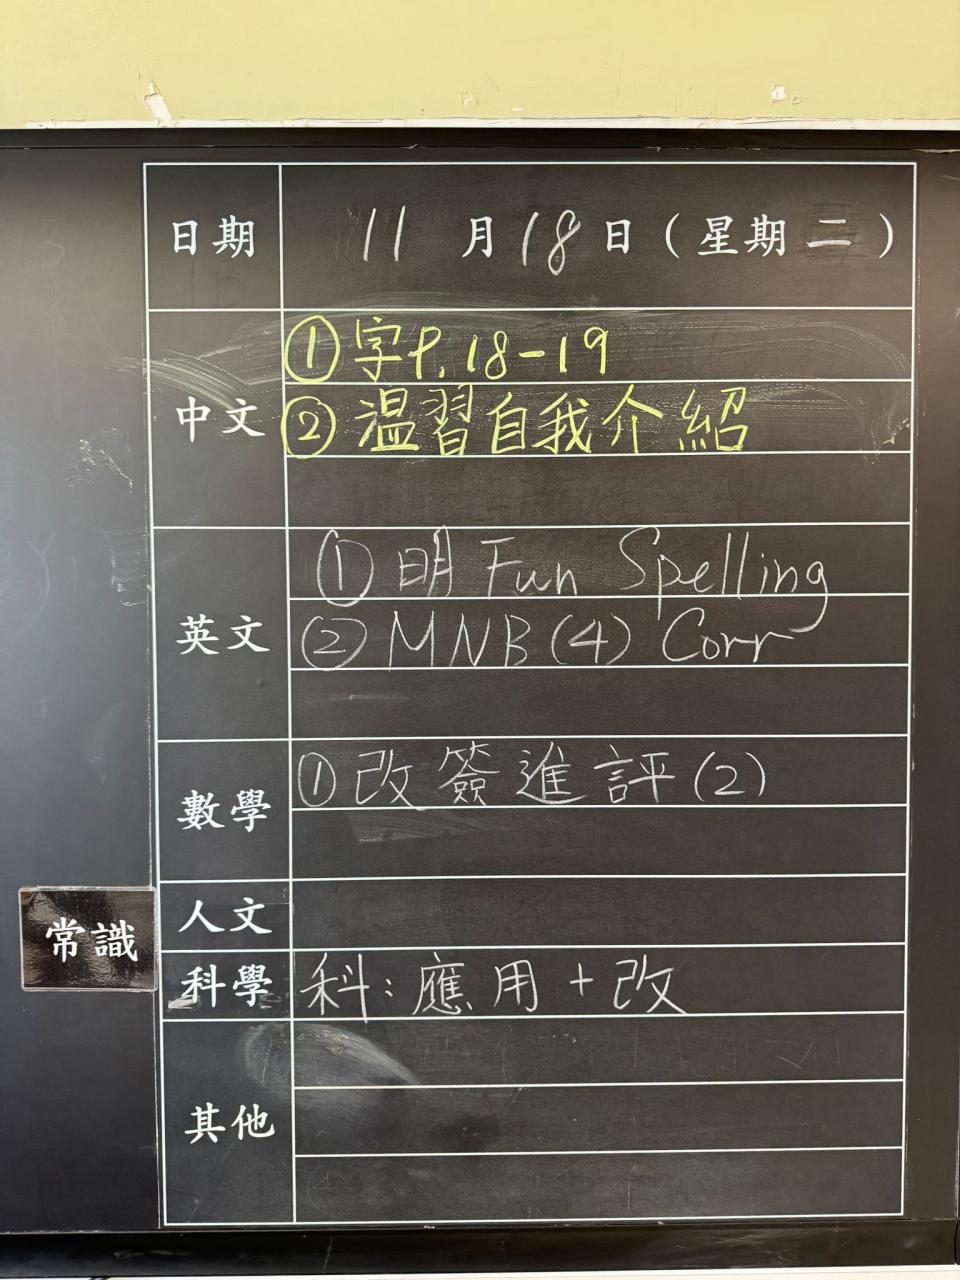 日期 11 月 18 日 ( 星期 二 )
① 字P.18-19
中文 ② 温習自我介紹
① 明 Fun Spelling
英文 ② MNB (4) Corr
數學 ① 改簽進評 (2)
人文
常識
科學 科: 應用 + 改
其他